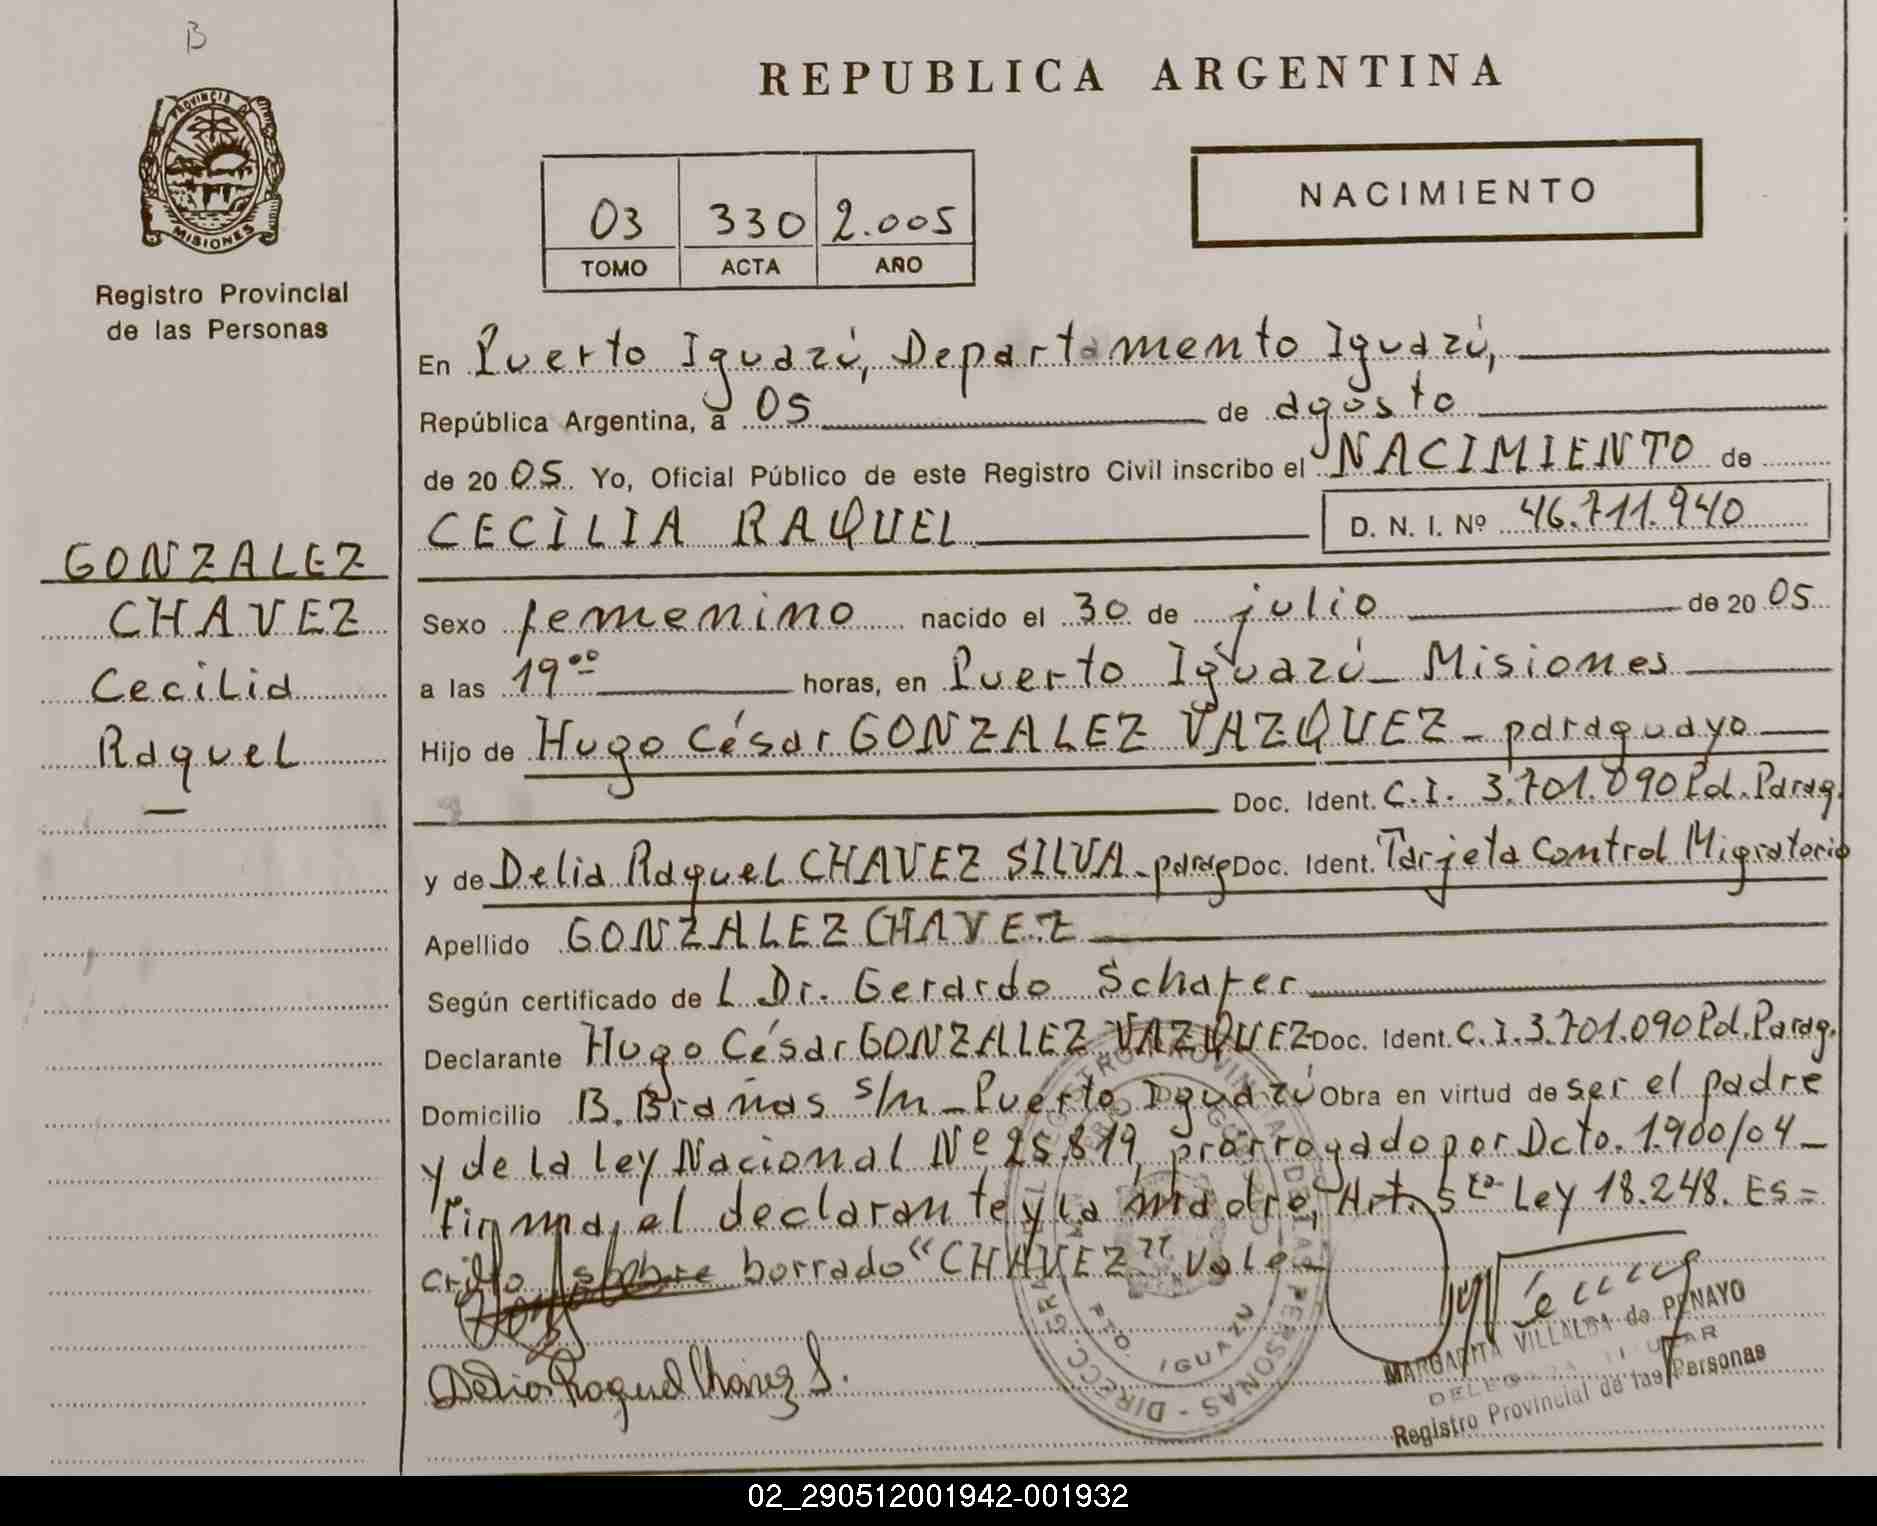 B
PROVINCIA DE
MISIONES
Registro Provincial
de las Personas
GONZALEZ
CHAVEZ
Cecilia
Raquel
—
REPUBLICA ARGENTINA
03 330 2.005
TOMO ACTA AÑO
NACIMIENTO
En Puerto Iguazú, Departamento Iguazú,
República Argentina, a 05 de agosto
de 2005. Yo, Oficial Público de este Registro Civil inscribo el NACIMIENTO de
CECILIA RAQUEL D. N. I. Nº 46.711.940
Sexo femenino nacido el 30 de julio de 2005
a las 19ºº horas, en Puerto Iguazú - Misiones
Hijo de Hugo César GONZALEZ VAZQUEZ - paraguayo
Doc. Ident. C.I. 3.701.090 Pol. Parag.
y de Delia Raquel CHAVEZ SILVA - parag Doc. Ident. Tarjeta Control Migratorio
Apellido GONZALEZ CHAVEZ
Según certificado de L Dr. Gerardo Schafer
Declarante Hugo César GONZALEZ VAZQUEZ Doc. Ident. C.I. 3.701.090 Pol. Parag.
Domicilio B. Brañas s/n - Puerto Iguazú Obra en virtud de ser el padre
y de la Ley Nacional Nº 25.819, prorrogado por Dcto. 1.900/04 -
Firma, el declarante y la madre, Art. 5to Ley 18.248. Es=
crito sobre borrado "CHAVEZ" Vale -
Delia Raquel Chávez S.
PTO. IGUAZU
MARGARITA VILLALBA de PENAYO
DELEGADA TITULAR
Registro Provincial de las Personas
02_290512001942-001932